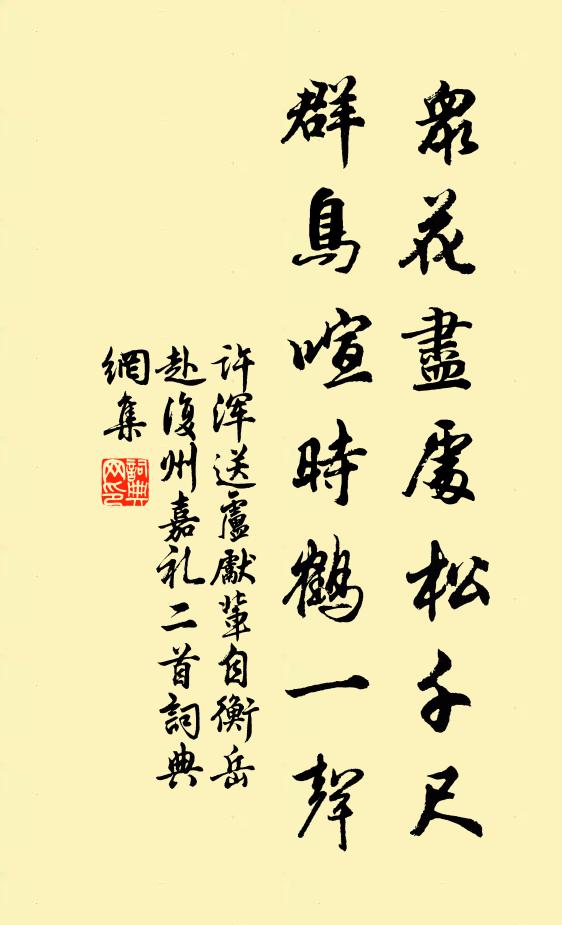 眾花盡處松千尺
群鳥喧時鶴一聲
许浑送盧獻輩自衡岳
赴復州嘉礼二首詞典
網集
詞典网印